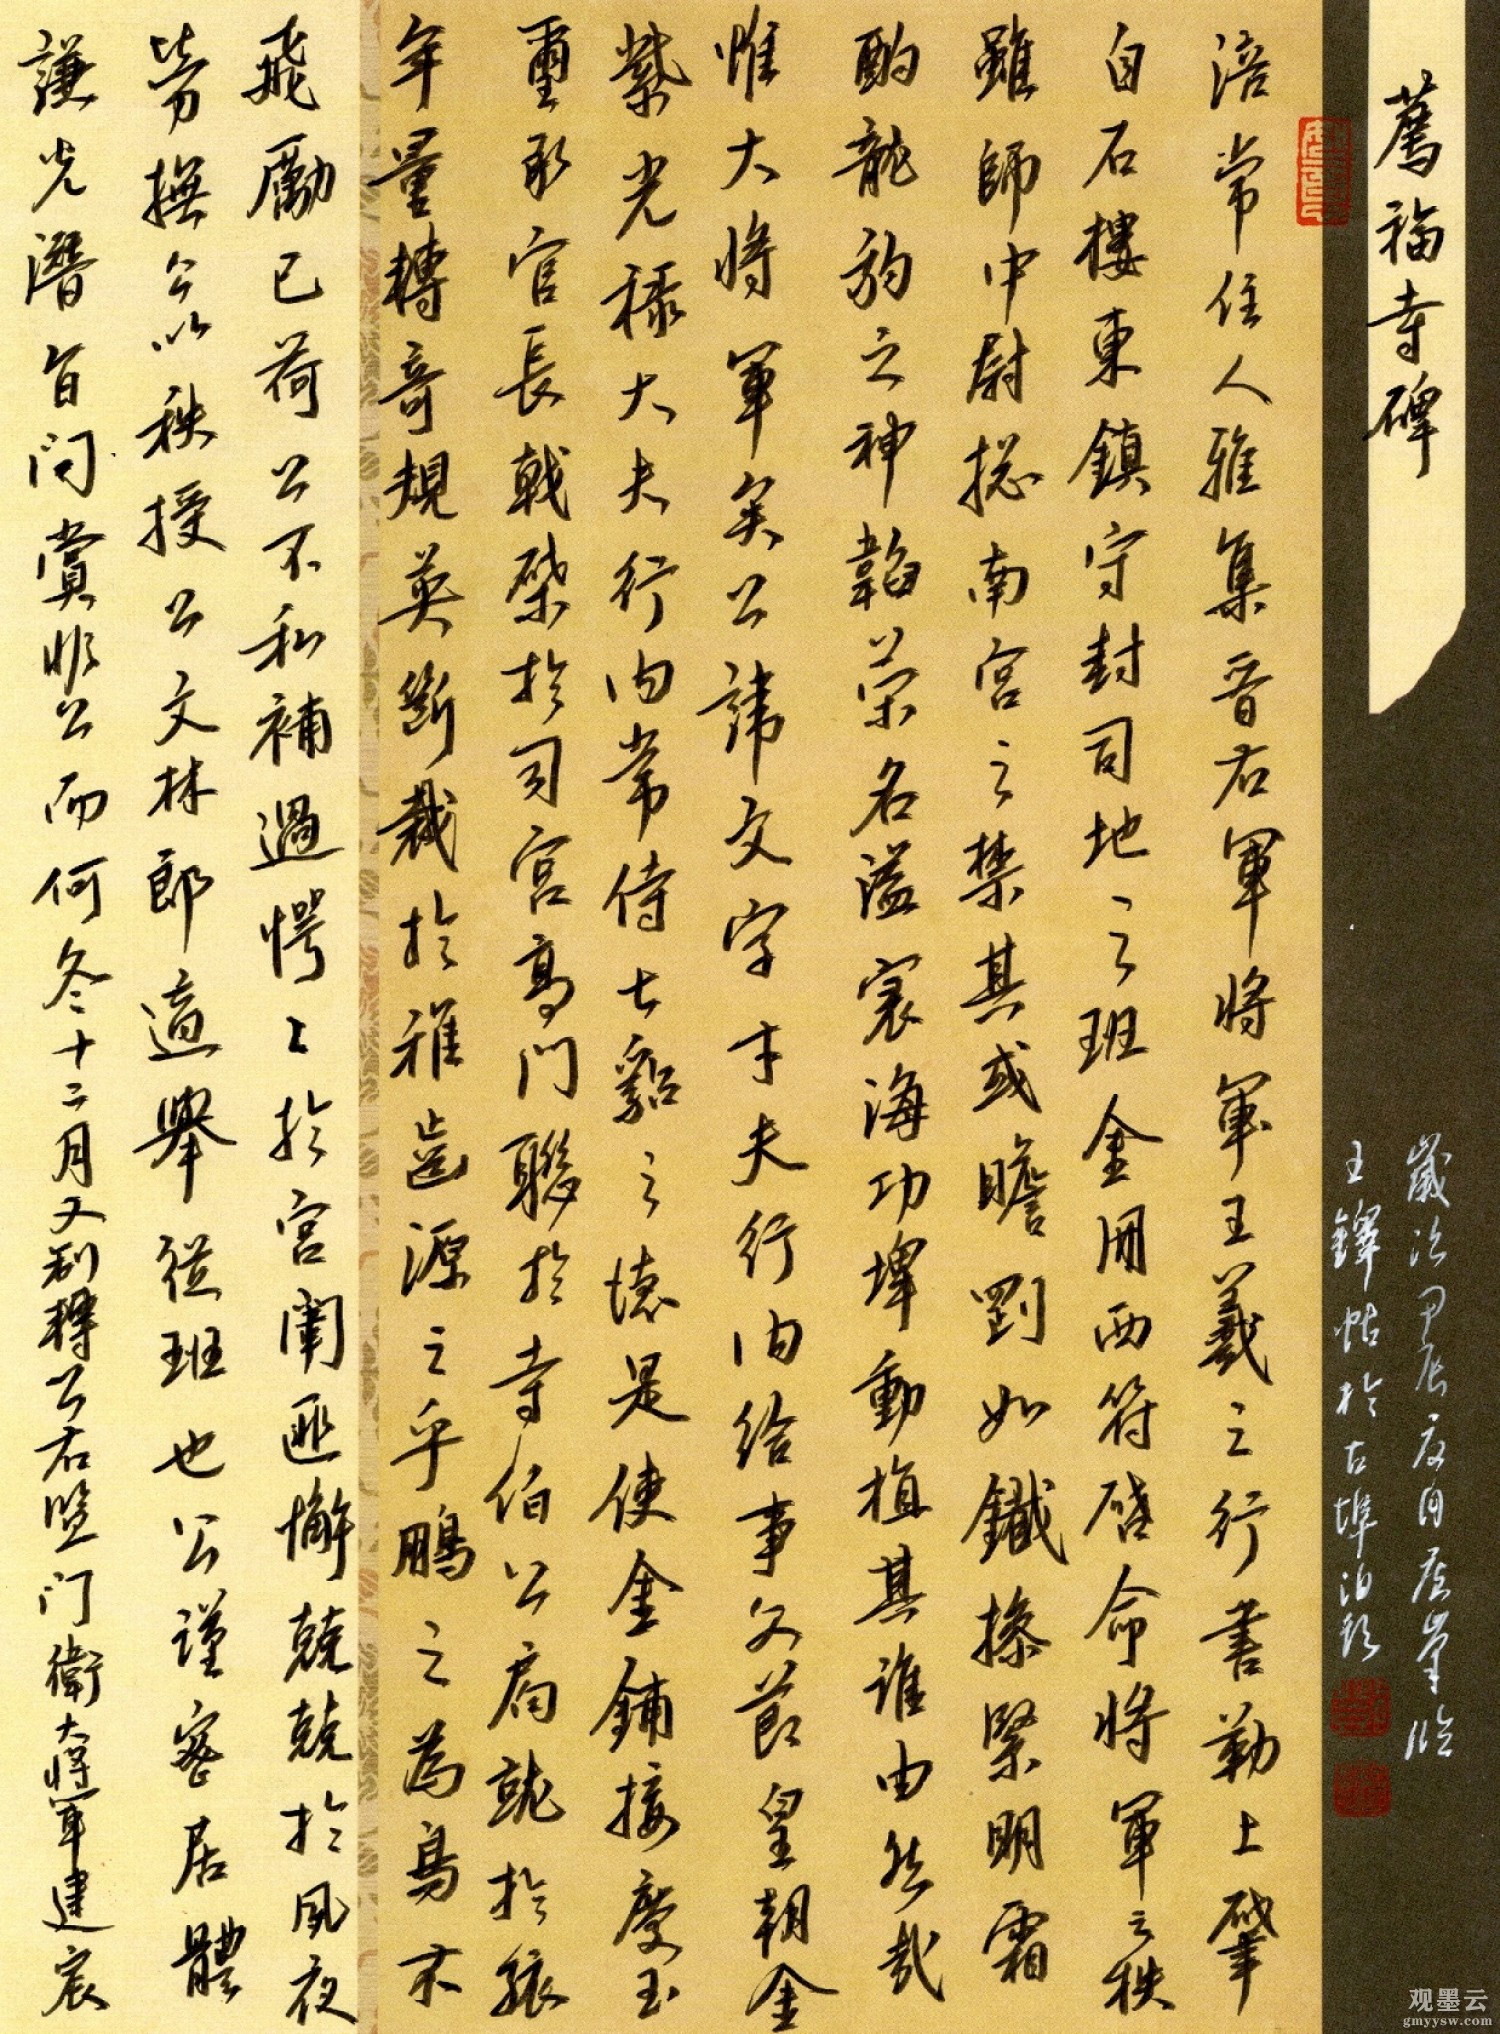 薦福寺碑
歲次甲辰夏月
王鐸帖於古埠泊
涪常住人雅集晋右軍將軍王羲之行書勒上肇
自石樓東鎮守封司地之班金冊西符啓命將軍之秩
雖師中尉揔南宮之禁其或瞻劉如鐵操緊明霜
酌龍豹之神韜荣名溢寰海功埤動植其誰由然哉
惟大將軍矣公諱文字才夫行内給事父節皇朝金
紫光祿大夫行内常侍七貂之懷是使金鋪接慶玉
璽承官長戟棨於司宮高門聯於寺伯公肩就於繈
年量轉奇規英断裁於稚齒源之乎鵬之為鳥未
飛勵己荷公不私補過愕〻於宮闈匪懈兢兢於風夜
勞撫公以秩授公文林郎適舉從班也公謹密居體
謙光潛旨问賞非公而何冬十二月又制轉公右監门衛大將軍建宸
观墨云
gmyysw.com